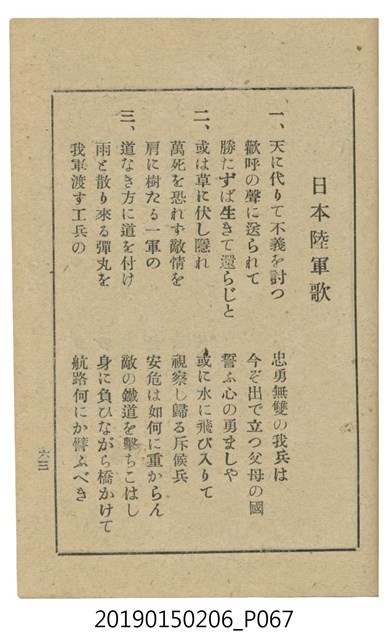 日本陸軍歌
一、天に代りて不義を討つ　忠勇無雙の我兵は
歡呼の聲に送られて　今ぞ出で立つ父母の國
勝たずば生きて還らじと　誓ふ心の勇ましや
二、或は草に伏し隱れ　或に水に飛び入りて
萬死を恐れず敵情を　視察し歸る斥候兵
肩に樹たる一軍の　安危は如何に重からん
三、道なき方に道を付け　敵の鐵道を擊ちこはし
雨と散り來る彈丸を　身に負ひながら橋かけて
我軍渡す工兵の　航路何にか譬ふべき
六三
20190150206_P067